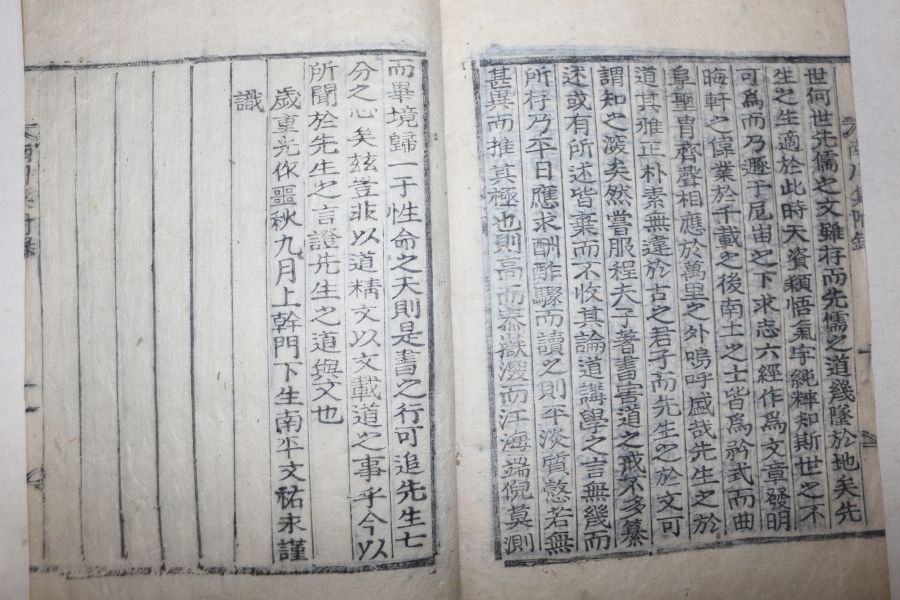 世何世先儒之文雖存而先儒之道幾墜於地矣先
生之生適於此時天資穎悟氣宇純粹知斯世之不
可爲而乃遯于尼峀之下求志六經作爲文章發明
晦軒之偉業於千載之後南土之士皆爲矜式而曲
阜聖胄齊聲相應於萬里之外嗚呼盛哉先生之於
道其雅正朴素無違於古之君子而先生之於文可
謂知之深矣然嘗服程夫子著書害道之戒不多纂
述或有所述皆棄而不收其論道講學之言無幾而
所存乃平日應求酬酢驟而讀之則平淡質慤若無
甚異而推其極也則高而泰嶽深而汪海端倪莫測
而畢境歸一于性命之天則是書之行可追先生七
分之心矣玆豈非以道精文以文載道之事乎今以
所聞於先生之言證先生之道與文也
歲重光作噩秋九月上幹門下生南平文祐永謹
識